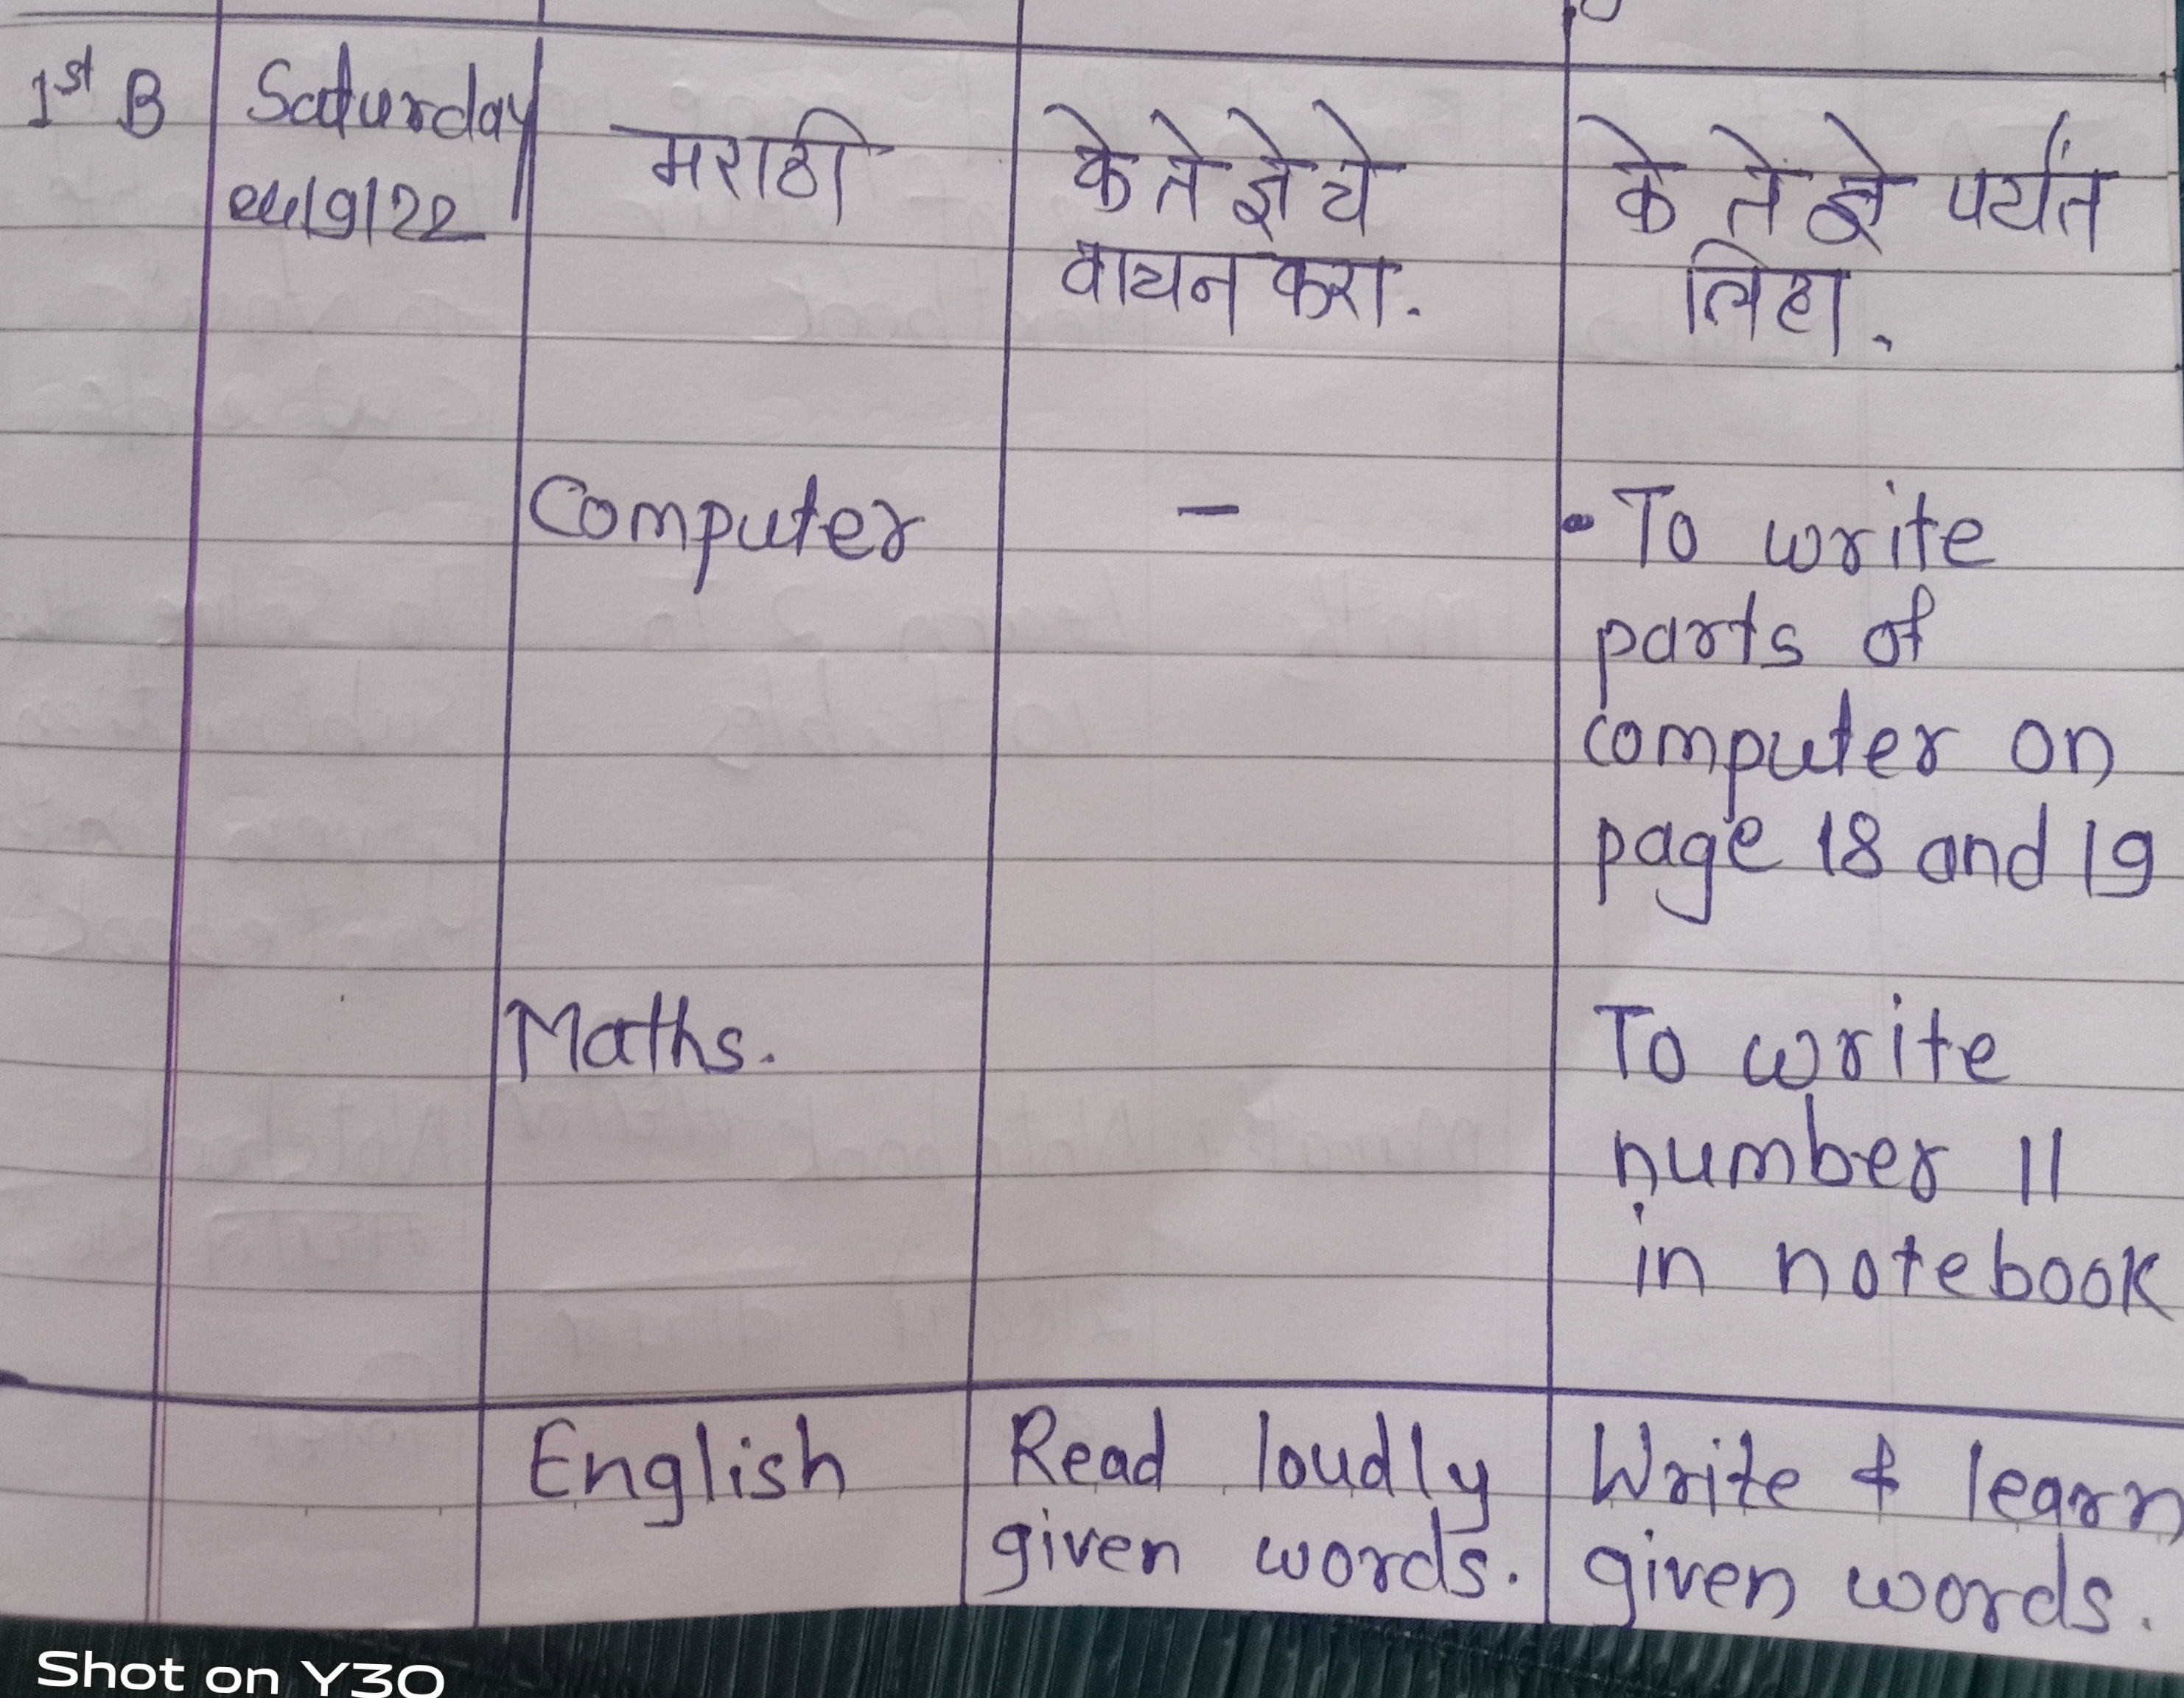 1st B
Saturday
मराठी
के ते ज्ञे चे
वाचन करा.
के ते ज्ञे पर्यंत
लिहा.
Computer
-
• To write
parts of
computer on
page 18 and 19
Maths.
To write
number 11
in notebook
English
Read loudly
given words.
Write & learn
given words.
Shot on Y30